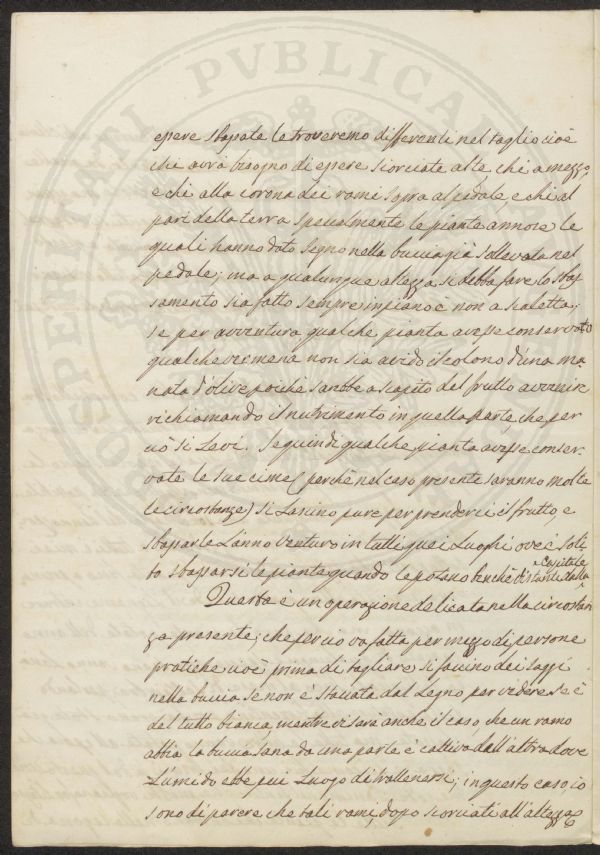 PROSPERITATI PVBLICAE
essere sbassate le troveremo differenti nel taglio cioè
chi avrà bisogno di essere scorciate alte, chi a mezzo,
e chi alla corona dei rami sopra al pedale, e chi al
pari della terra specialmente le piante annose le
quali hanno dato segno nella buccia già sollevata nel
pedale; ma a qualunque altezza si debba fare lo sbas
samento sia fatto sempre in piano è non a scaletta;
se per avventura qualche pianta avesse conservato
qualche vermena non sia avido il colono d'una ma,
nata d'olive poiché sarebbe a scapito del frutto avvenire
richiamando il nutrimento in quella parte che per
ciò si Levi. Se quindi qualche pianta avesse conser,
vate le sue cime (perchè nel caso presente saranno molte
le circostanze) si Lasino pure per prenderci il frutto, e
sbassarle L'anno venturo in tutti quei Luoghi ove è soli,
to sbassarsi le piante quando le potano benchè distante dalla
Capitale
Questa è un operazione delicata nella circostan
za presente, che perciò va fatta per mezzo di persone
pratiche cioè prima di tagliare si faccino dei saggi
nella buccia se non è staccata dal Legno per vedere se è
del tutto bianca, mentre vi sarà anche il caso, che un ramo
abbia la buccia sana da una parte e cattiva dall'altra dove
L'umido ebbe più Luogo di trattenersi; in questo caso io
sono di parere che tali rami, dopo scorciati all'altezza